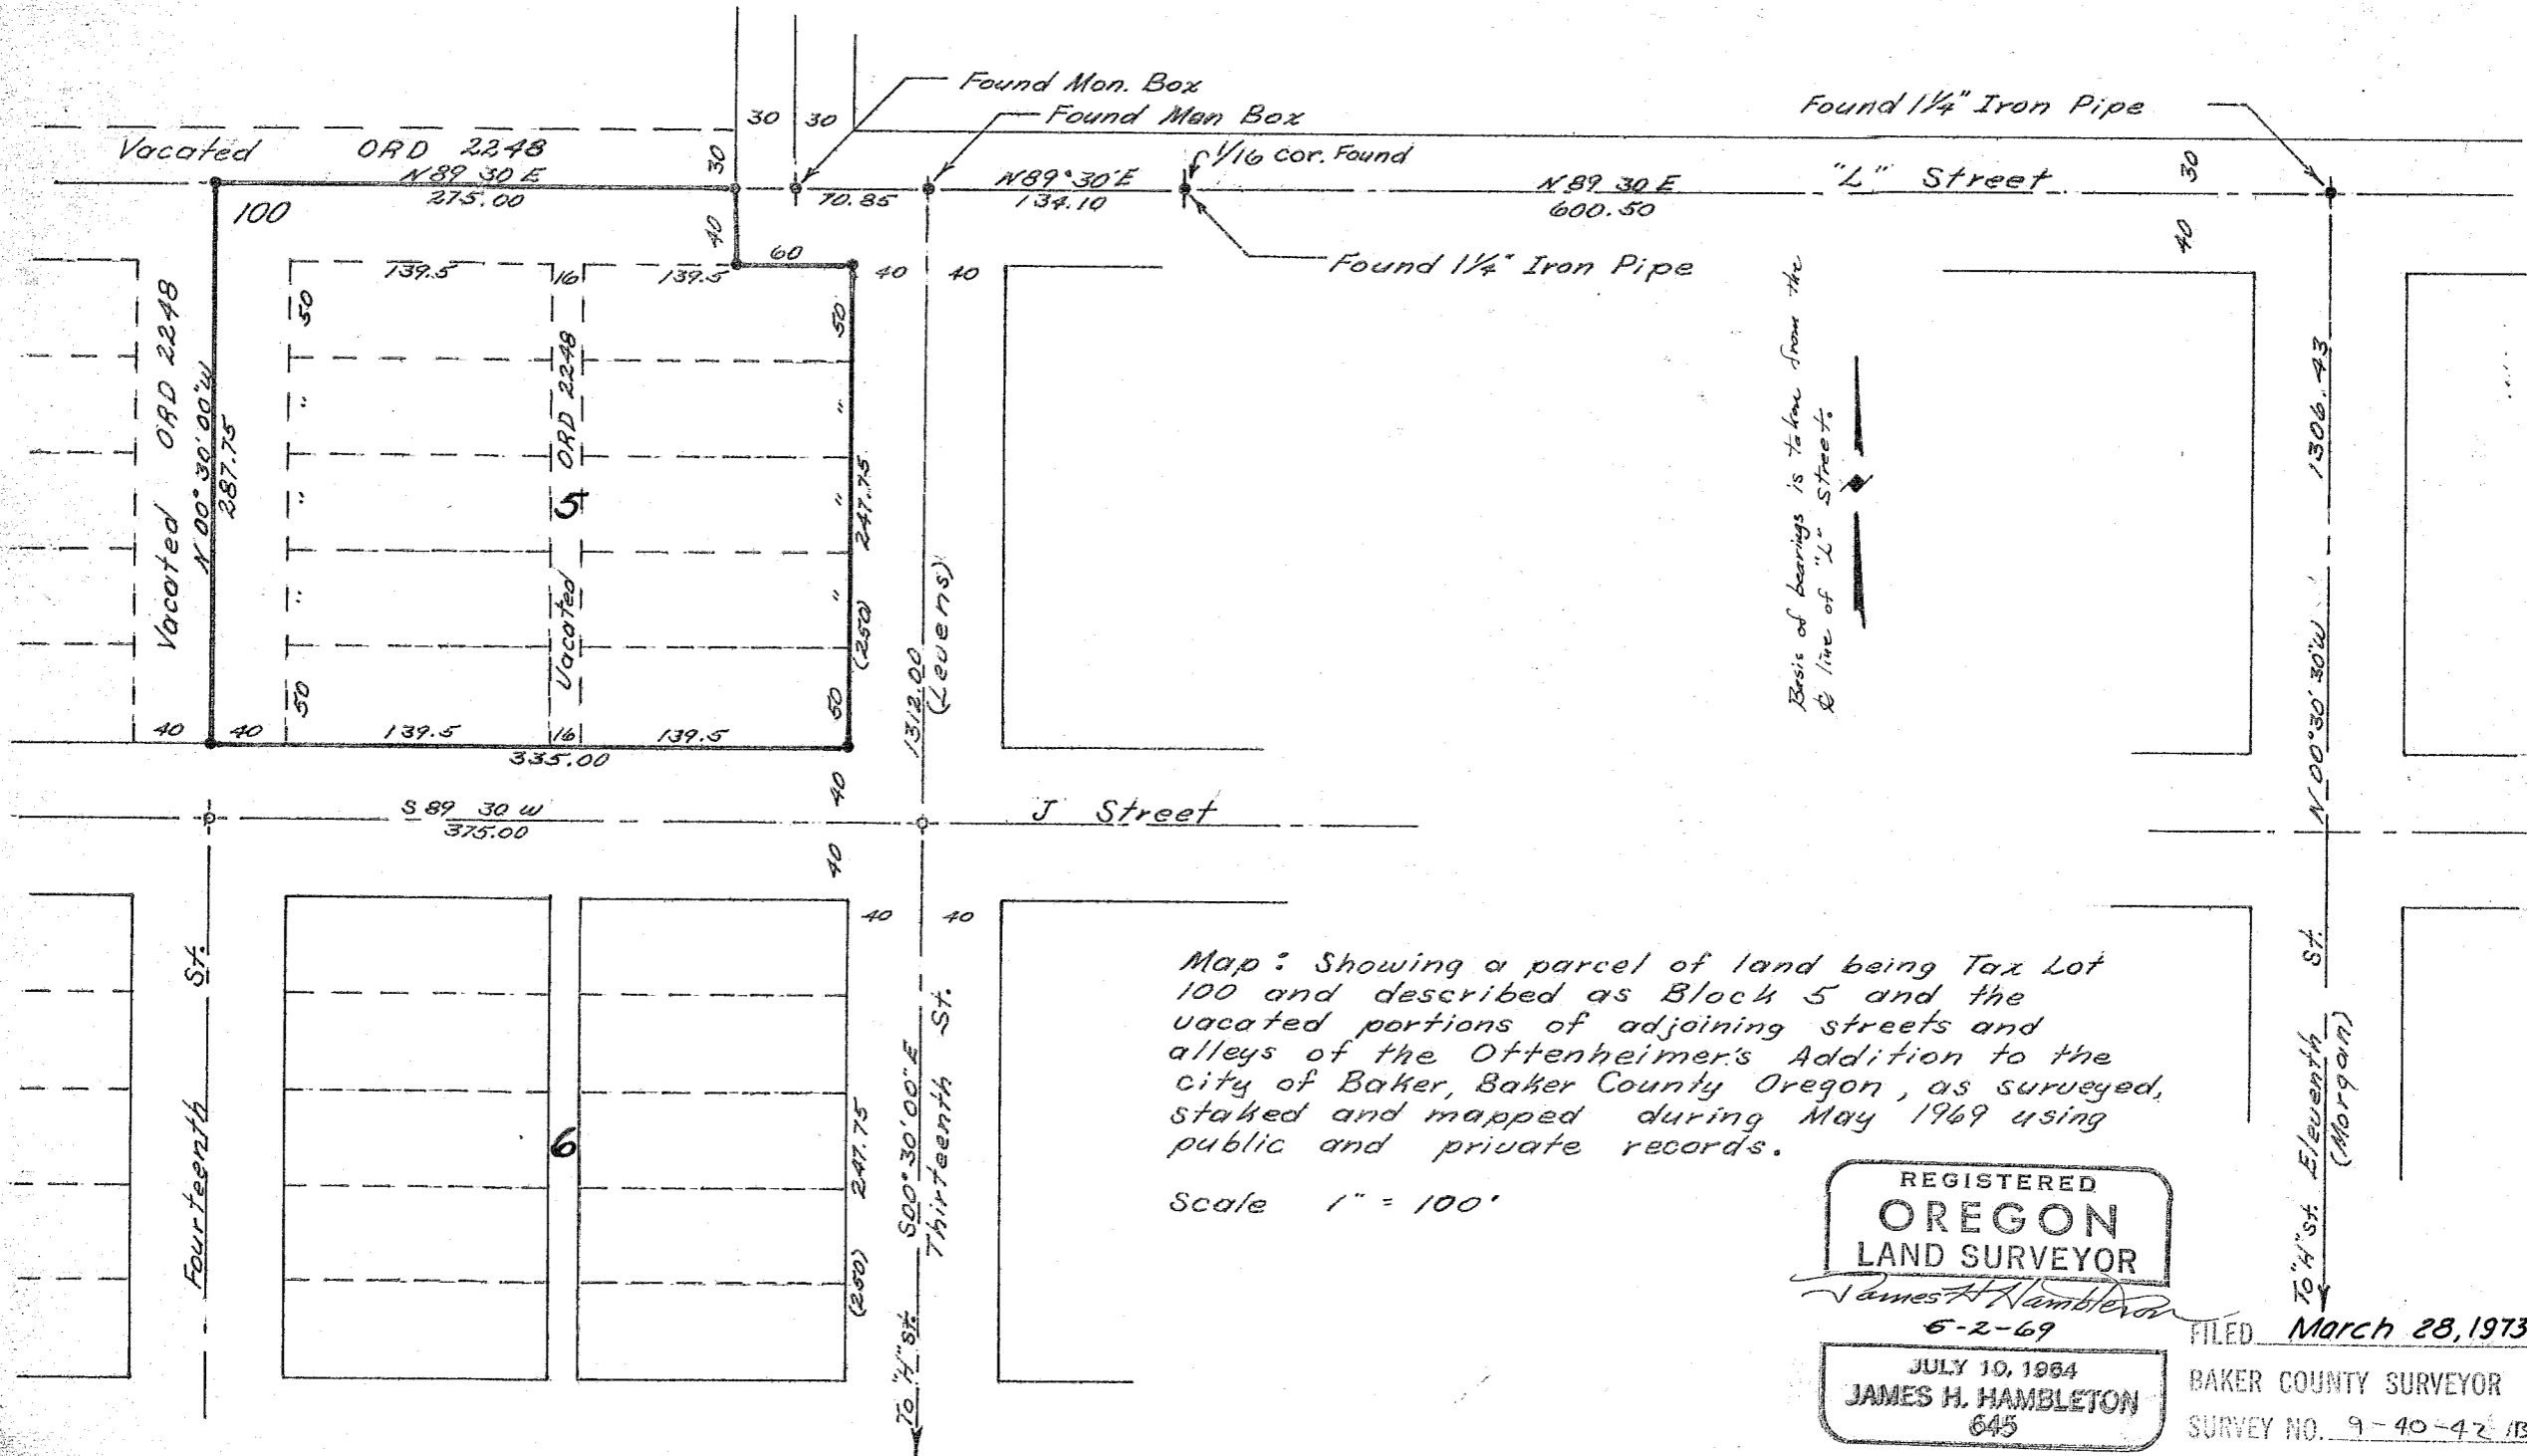 Found Mon. Box
Found Mon Box
Found 1¼" Iron Pipe
30 30
Vacated ORD 2248
30
1/16 cor. Found
30
N 89 30 E
275.00
70.85
N89°30'E
134.10
N 89 30 E
600.50
"L" Street
100
40
40
60
139.5
16
139.5
40 40
Found 1¼" Iron Pipe
50
50
Vacated ORD 2248
N 00° 30' 00" W
287.75
"
"
"
"
Vacated ORD 2248
5
"
"
"
247.75
(250)
50
50
1312.00
(Levens)
Basis of bearings is taken from the
℄ line of "L" Street.
1306.43
N 00° 30' 30" W
40 40
139.5
16
139.5
335.00
40
S 89 30 W
375.00
J Street
40
40 40
Fourteenth St.
6
247.75
(250)
S00°30'00"E
Thirteenth St.
To "H" st.
St.
Eleventh
(Morgan)
To "H" st.
Map: Showing a parcel of land being Tax Lot
100 and described as Block 5 and the
vacated portions of adjoining streets and
alleys of the Ottenheimer's Addition to the
city of Baker, Baker County Oregon, as surveyed,
staked and mapped during May 1969 using
public and private records.
Scale 1" = 100'
REGISTERED
OREGON
LAND SURVEYOR
James H Hambleton
6-2-69
JULY 10, 1964
JAMES H. HAMBLETON
645
FILED March 28, 1973
BAKER COUNTY SURVEYOR
SURVEY NO. 9-40-42